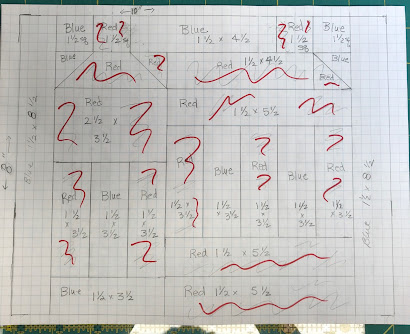 10"
Blue
1½ sq
Red
1½ sq
Blue
1½ × 4½
Red
1½ sq
Blue
1½ sq
Blue
Red
Red
Red 1½ × 4½
Blue
Red
Red
2½ ×
3½
Red
1½ × 5½
8"
Blue 1½ × 8½
Red
1½
×
3½
Blue
1½
×
3½
Red
1½
×
3½
Red
1½ ×
3½
Blue
1½
× 3½
Red
1½
×
3½
Blue
1½
×
3½
Red
1½
× 3½
Blue 1½ × 8½
Red 1½ × 5½
Blue 1½ × 3½
Red 1½ × 5½